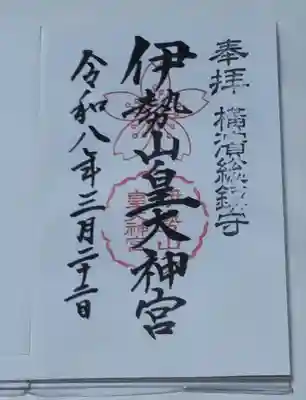 奉拝 横濱総鎮守
伊勢山皇大神宮
令和八年三月二十二日